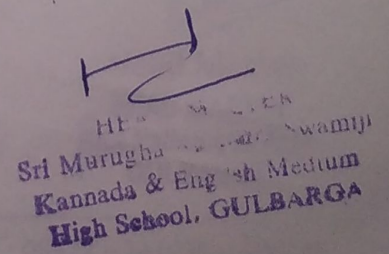 Sri Murugha Swamiji
Kannada & English Medium
High School, GULBARGA